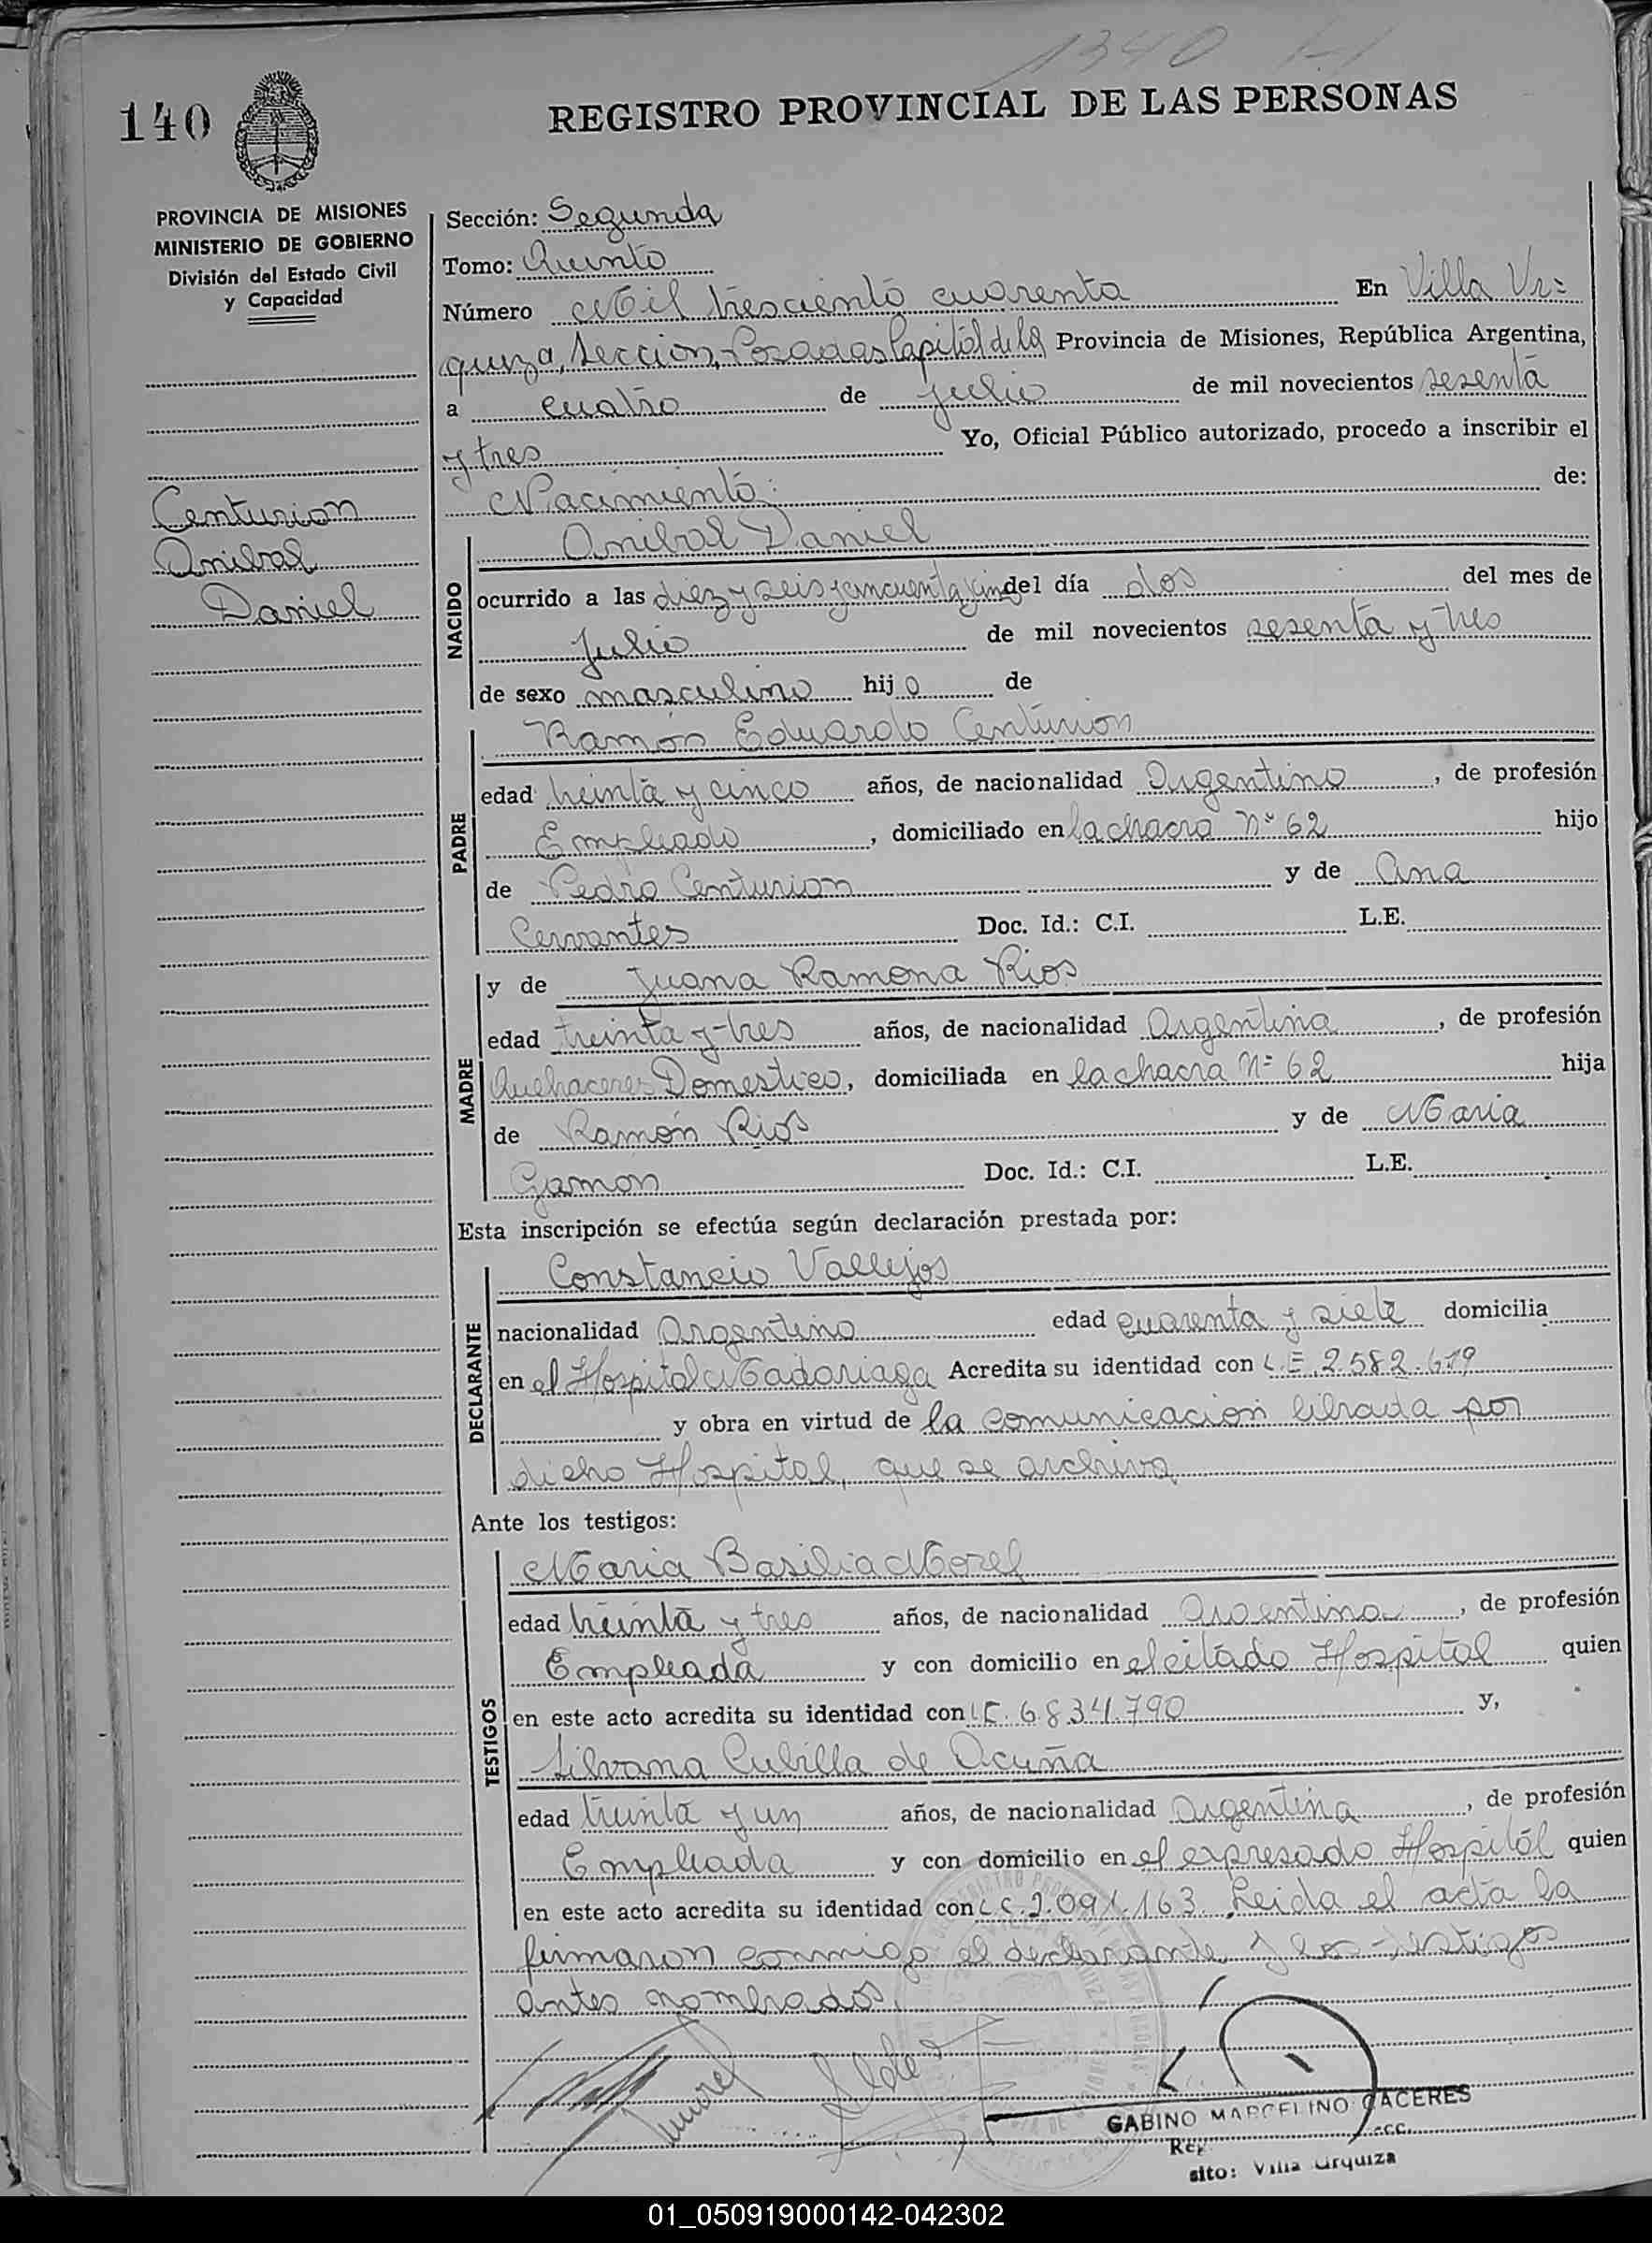 1340
140
REGISTRO PROVINCIAL DE LAS PERSONAS
PROVINCIA DE MISIONES
MINISTERIO DE GOBIERNO
División del Estado Civil
y Capacidad
Centurion
Anibal
Daniel
Sección: Segunda
Tomo: Quinto
Número Mil tresciento cuarenta En Villa Ur=
quiza, Seccion, Posadas Capital de la Provincia de Misiones, República Argentina,
a cuatro de julio de mil novecientos sesenta
y tres Yo, Oficial Público autorizado, procedo a inscribir el
Nacimiento: de:
NACIDO
Anibal Daniel
ocurrido a las diez y seis y cincuenta y cin del día dos del mes de
Julio de mil novecientos sesenta y tres
de sexo masculino hijo de
PADRE
Ramón Eduardo Centurion
edad treinta y cinco años, de nacionalidad Argentino, de profesión
Empleado, domiciliado en la chacra Nº 62 hijo
de Pedro Centurion y de Ana
Cervantes Doc. Id.: C.I. L.E.
MADRE
y de Juana Ramona Rios
edad treinta y tres años, de nacionalidad Argentina, de profesión
Quehaceres Domestico, domiciliada en la chacra Nº 62 hija
de Ramón Rios y de Maria
Gamon Doc. Id.: C.I. L.E.
Esta inscripción se efectúa según declaración prestada por:
DECLARANTE
Constancio Vallejos
nacionalidad Argentino edad cuarenta y siete domicilia
en el Hospital Madariaga Acredita su identidad con L.E. 2.582.619
y obra en virtud de la comunicacion librada por
dicho Hospital, que se archiva
Ante los testigos:
TESTIGOS
Maria Basilia Morel
edad treinta y tres años, de nacionalidad Argentina, de profesión
Empleada y con domicilio en el citado Hospital quien
en este acto acredita su identidad con L.C. 6.834.790 y,
Silvana Cubilla de Acuña
edad treinta y un años, de nacionalidad Argentina, de profesión
Empleada y con domicilio en el expresado Hospital quien
en este acto acredita su identidad con L.C. 2.091.163. Leida el acta la
firmaron conmigo el declarante y los testigos
antes nombrados.
GABINO MARCELINO CACERES
sito: Villa Urquiza
01_050919000142-042302